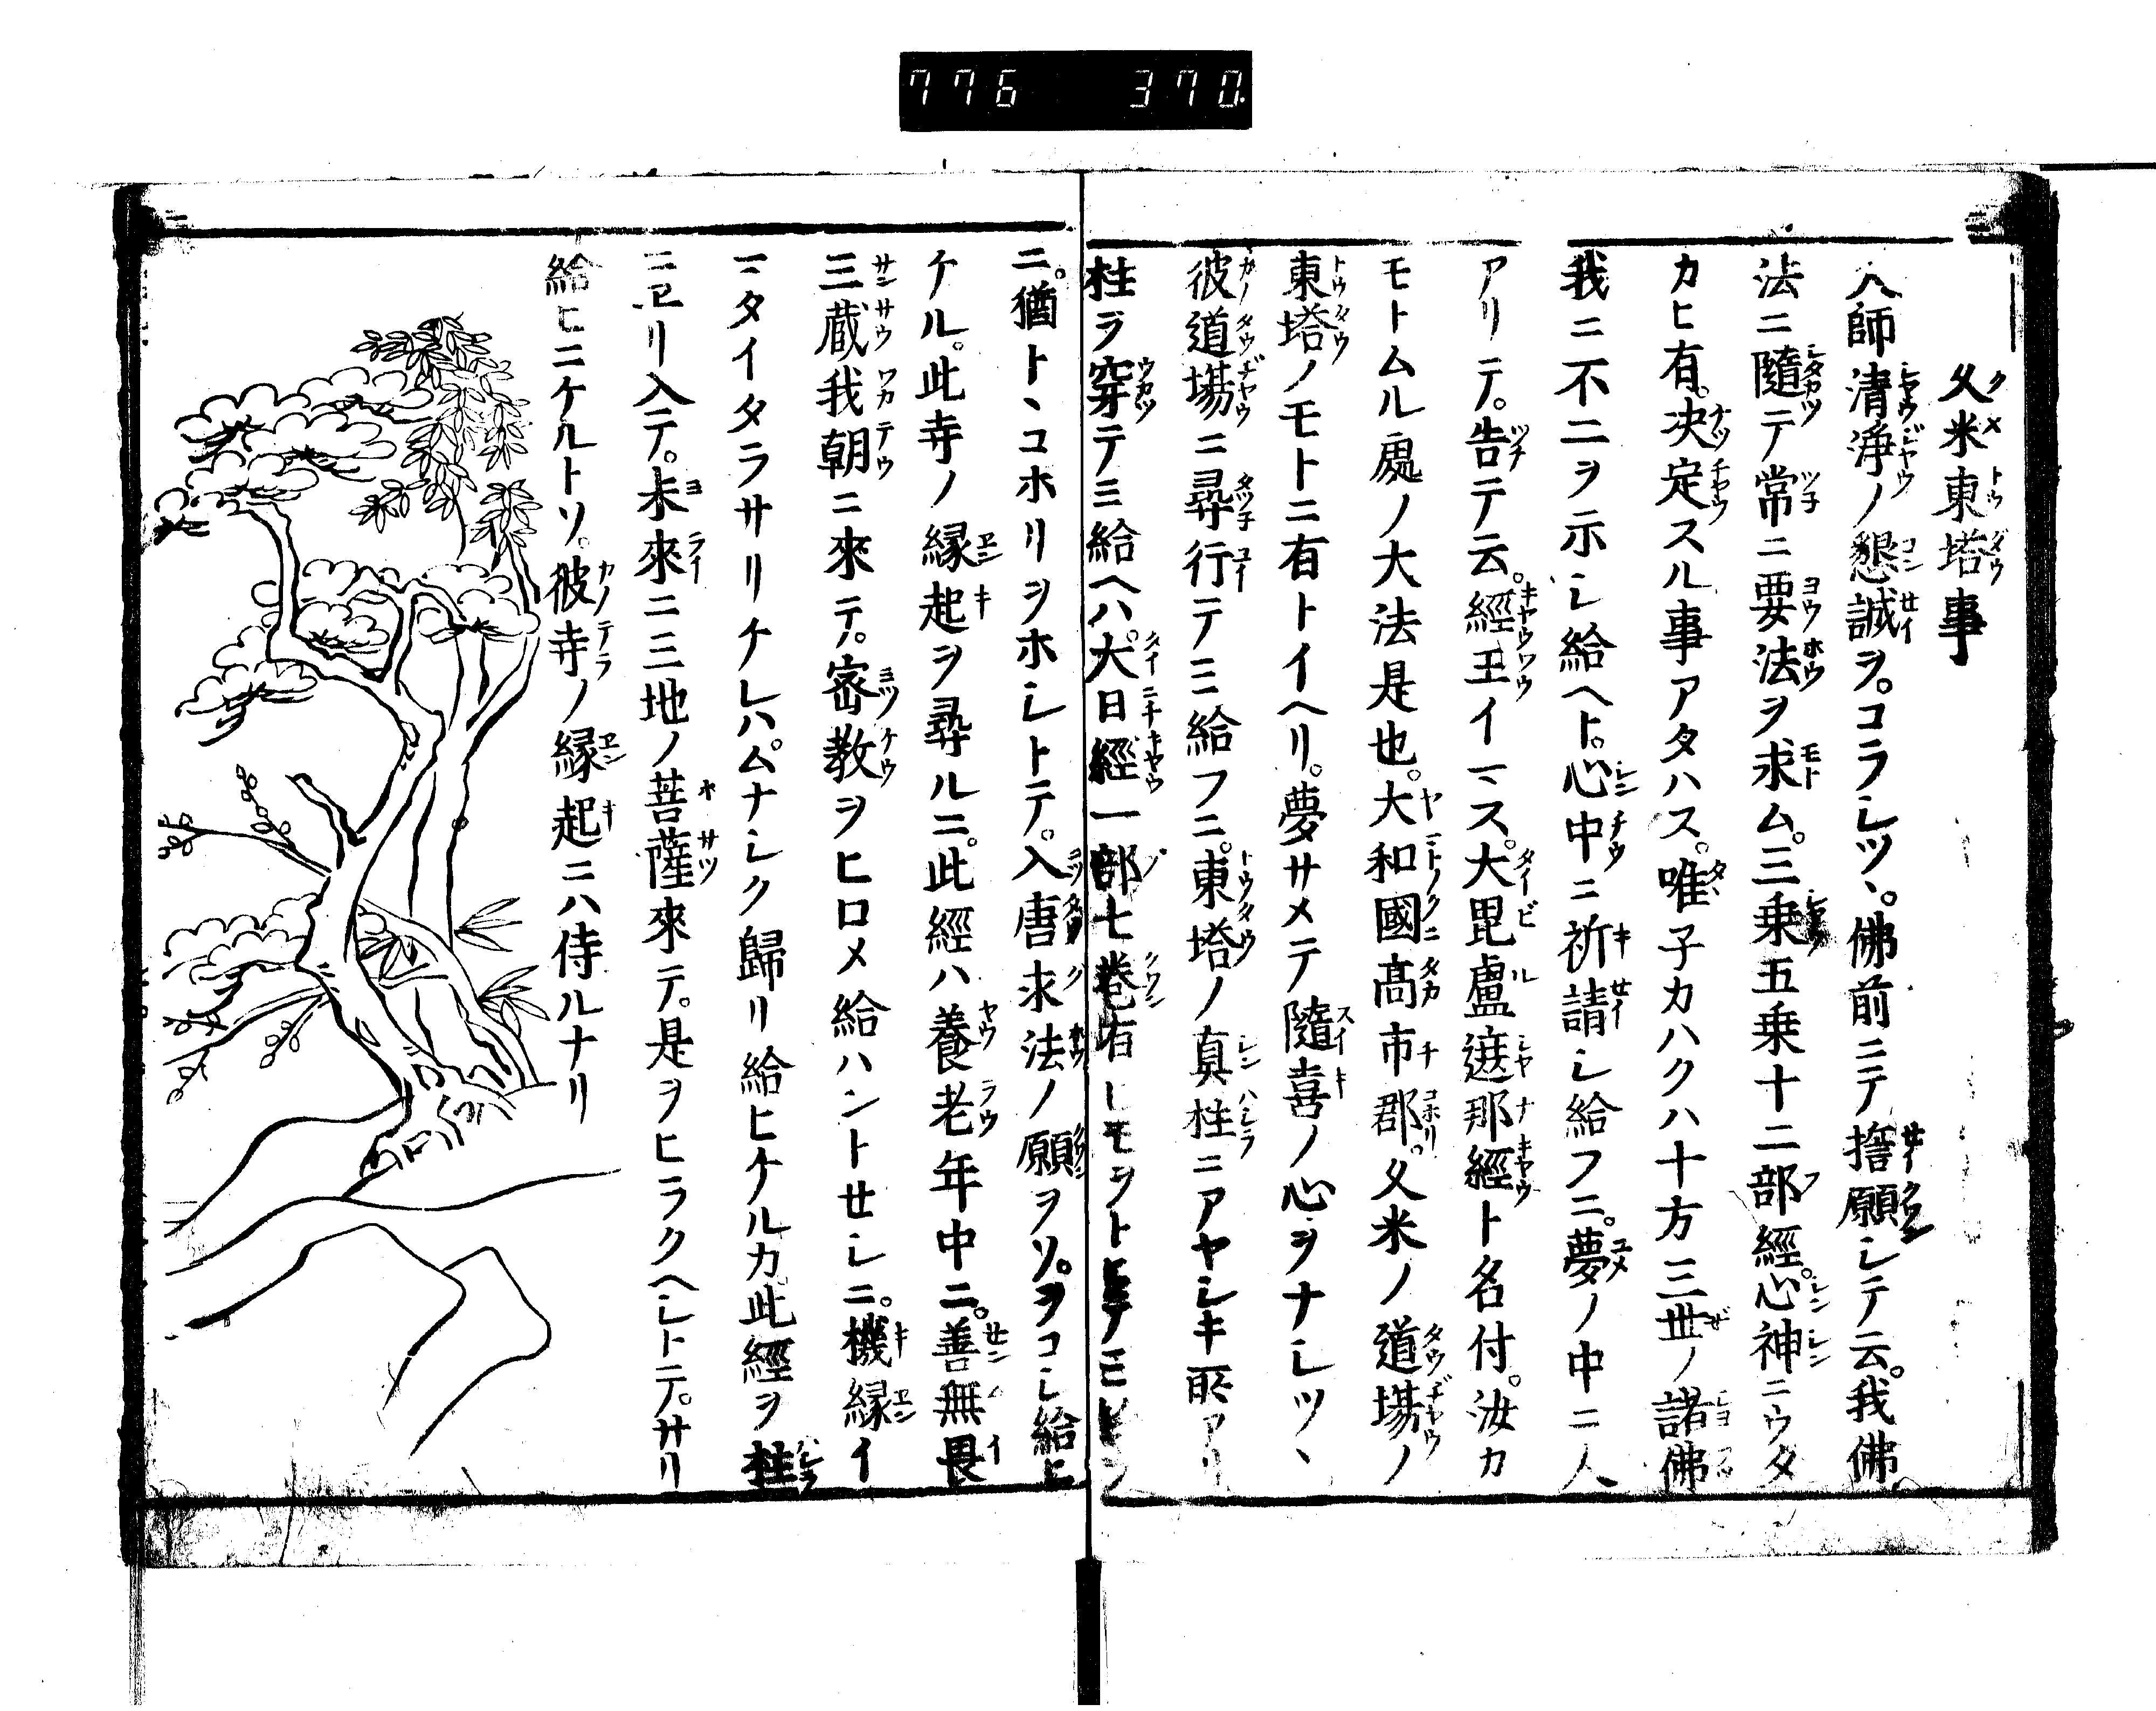 776 370
久米東塔事
大師清浄ノ懇誠ヲ。コラシツヽ。佛前ニテ 誓願シテ云。我佛
法ニ隨テ常ニ要法ヲ求ム。三乗五乗十二部經。心神ニウタ
カヒ有。决定スル事アタハス。唯子カハクハ十方三世ノ諸佛
我ニ不二ヲ示シ給ヘト。心中ニ祈請シ給フニ。夢ノ中ニ人
アリテ。告テ云。經王イマス。大毘盧遮那經ト名付。汝カ
モトムル處ノ大法是也。大和國髙市郡。久米ノ道塲ノ
東塔ノモトニ有トイヘリ。夢サメテ隨喜ノ心ヲナシツヽ
彼道塲ニ尋行テミ給フニ。東塔ノ真柱ニアヤシキ所アリ
柱ヲ穿テミ給ヘハ。大日經一部七巻有シモヲト
ニ。猶トヽコホリヲホシトテ。入唐求法ノ願ヲソ。ヲコシ給ヒ
ケル。此寺ノ縁起ヲ尋ルニ。此經ハ養老年中ニ。善無畏
三蔵我朝ニ來テ。密教ヲヒロメ給ハントセシニ。機縁イ
マタイタラサリケレハ。ムナシク歸リ給ヒケルカ。此經ヲ柱
ニヱリ入テ。未來ニ三地ノ菩薩來テ。是ヲヒラクヘシトテ。サリ
給ヒニケルトソ。彼寺ノ縁起ニハ侍ルナリ